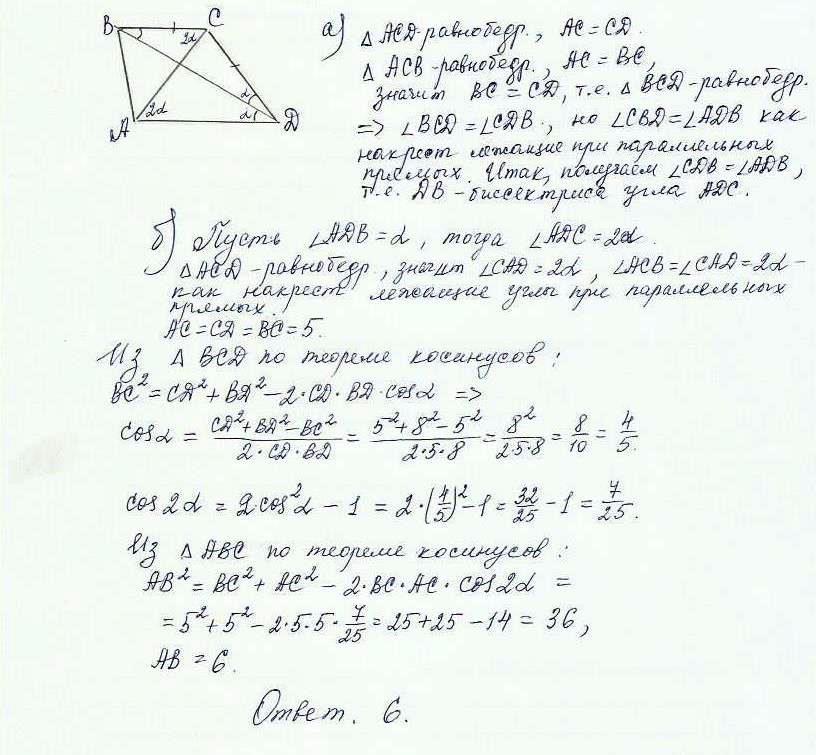 B C 2α α α 2α A D
а) Δ ACD-равнобедр., AC = CD.
Δ ACB-равнобедр., AC = BC,
значит BC = CD, т.е. Δ BCD-равнобедр.
=> ∠BCD = ∠CDB, но ∠CBD = ∠ADB как
накрест лежащие при параллельных
прямых. Итак, получаем ∠CDB = ∠ADB,
т.е. DB - биссектриса угла ADC.
б) Пусть ∠ADB = α, тогда ∠ADC = 2α.
Δ ACD - равнобедр., значит ∠CAD = 2α, ∠ACB = ∠CAD = 2α -
как накрест лежащие углы при параллельных
прямых.
AC = CD = BC = 5.
Из Δ BCD по теореме косинусов:
BC² = CD² + BD² - 2·CD·BD·cosα =>
cosα = (CD² + BD² - BC²)/(2·CD·BD) = (5² + 8² - 5²)/(2·5·8) = 8²/(2·5·8) = 8/10 = 4/5.
cos2α = 2cos²α - 1 = 2·(4/5)² - 1 = 32/25 - 1 = 7/25.
Из Δ ABC по теореме косинусов:
AB² = BC² + AC² - 2·BC·AC·cos2α =
= 5² + 5² - 2·5·5·7/25 = 25 + 25 - 14 = 36,
AB = 6.
Ответ. 6.